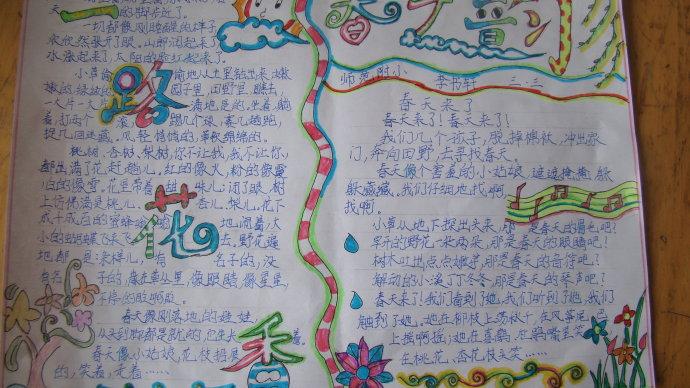 的脚步近了。
一切都像刚睡醒的样子
欣欣然张开了眼。山朗润起来了
水涨起来了，太阳的脸红起来了。
小草偷偷地从土里钻出来，嫩
嫩的，绿绿的园子里，田野里，瞧去，
一大片一大片满地是的。坐着，躺
着，打两个滚踢几脚球，赛几趟跑，
捉几回迷藏。风轻悄悄的，草软绵绵的。
桃树、杏树、梨树，你不让我，我不让你，
都开满了花赶趟儿。红的像火，粉的像霞
白的像雪。花里带着甜味儿；闭了眼，树
上仿佛满是桃儿、杏儿、梨儿。花下
成千成百的蜜蜂嗡嗡地闹着，大
小的蝴蝶飞来飞去。野花遍
地都是：杂样儿，有名字的，没
名字的，像在草丛里，像眼睛，像星星，
春天像刚落地的娃娃，
从头到脚都是新的，它生长着。
春天像小姑娘，花枝招展
的，笑着，走着……
春 童
师范附小 李书轩 三.三
春天来了
春天来了！春天来了！
我们几个孩子，脱掉棉袄，冲出家
门，奔向田野，去寻找春天。
春天像个害羞的小姑娘，遮遮掩掩，躲
躲藏藏。我们仔细地找啊，
找啊。
小草从地下探出头来，那是春天的眉毛吧？
早开的野花一朵两朵，那是春天的眼睛吧？
树木吐出点点嫩芽，那是春天的音符吧？
解冻的小溪丁丁冬冬，那是春天的琴声吧？
春天来了！我们看到了她，我们听到了她，我们
触到了她。她在柳枝上荡秋千，在风筝尾巴
上摇啊摇；她在喜鹊、杜鹃嘴里叫
在桃花、杏花枝头笑……